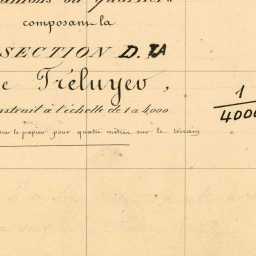 composant la
SECTION D. ZA
e Tréluyer,
nstruit à l'échelle de 1 a 4000
1
4000
sur le papier pour quatre mètres sur le terrain